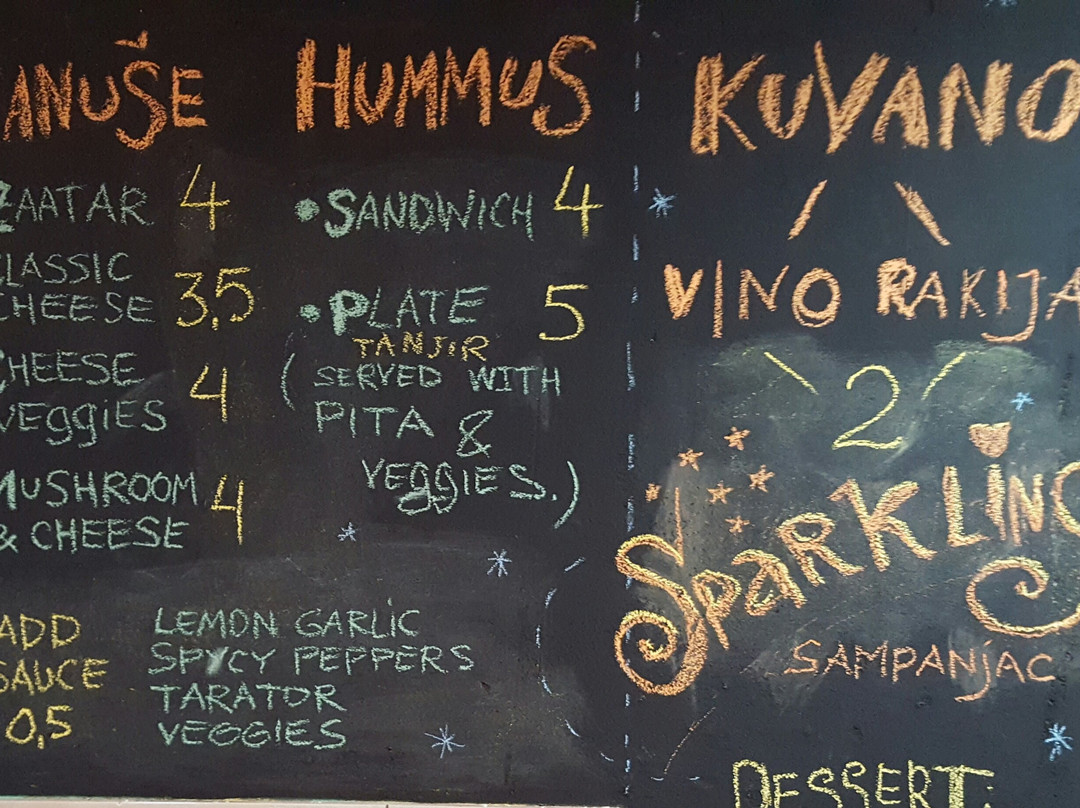 ANUŠE
ZAATAR 4
CLASSIC
CHEESE 3,5
CHEESE
VEGGIES 4
MUSHROOM
& CHEESE 4
ADD
SAUCE
0,5
LEMON GARLIC
SPYCY PEPPERS
TARATOR
VEGGIES
HUMMUS
• SANDWICH 4
• PLATE 5
TANJIR
(SERVED WITH
PITA &
VEGGIES.)
KUVANO
VINO RAKIJA
2
SPARKLING
SAMPANJAC
DESSERT: